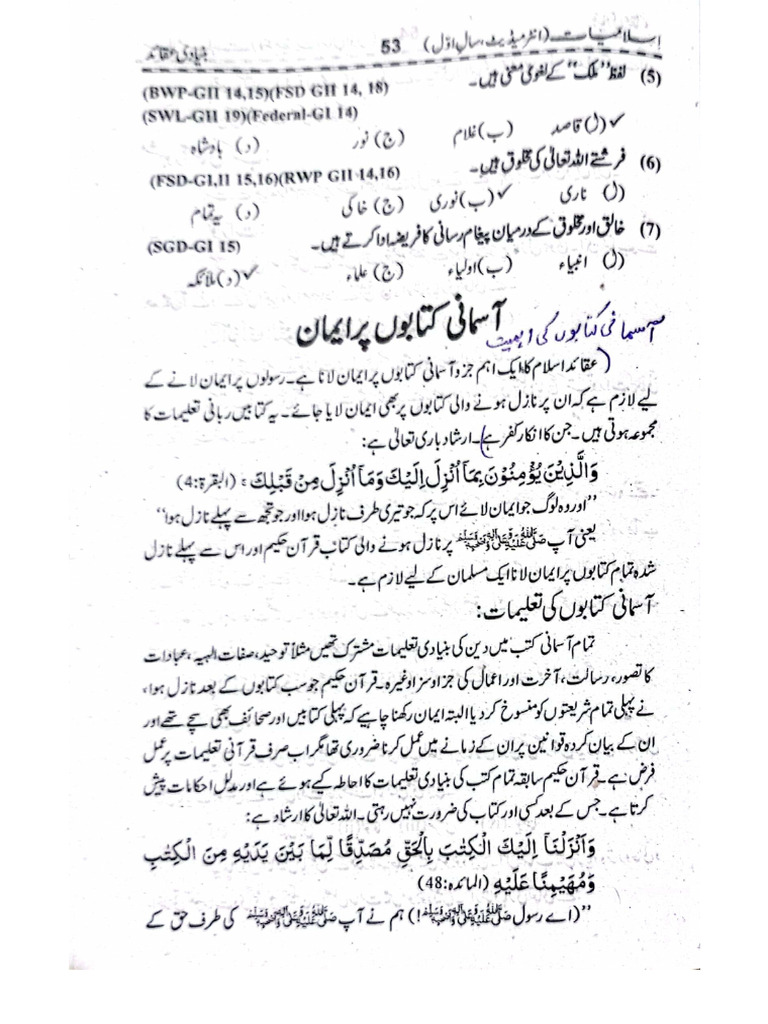 اسلامیات (انٹرمیڈیٹ، سال اوّل) 53 بنیادی عقائد
(5) لفظ "ملک" کے لغوی معنی ہیں۔ (BWP-GII 14,15)(FSD GII 14, 18)
(SWL-GII 19)(Federal-GI 14)
✓(ل) قاصد (ب) غلام (ج) نور (د) بادشاہ
(6) فرشتے اللہ تعالیٰ کی مخلوق ہیں۔ (FSD-GI,II 15,16)(RWP GII 14,16)
(ل) ناری ✓(ب) نوری (ج) خاکی (د) یہ تمام
(7) خالق اور مخلوق کے درمیان پیغام رسانی کا فریضہ ادا کرتے ہیں۔ (SGD-GI 15)
(ل) انبیاء (ب) اولیاء (ج) علماء ✓(د) ملائکہ
آسمانی کتابوں کی اہمیت
آسمانی کتابوں پر ایمان
(عقائد اسلام کا ایک اہم جزو آسمانی کتابوں پر ایمان لانا ہے۔ رسولوں پر ایمان لانے کے
لیے لازم ہے کہ ان پر نازل ہونے والی کتابوں پر بھی ایمان لایا جائے۔ یہ کتابیں ربانی تعلیمات کا
مجموعہ ہوتی ہیں۔ جن کا انکار کفر ہے)۔ ارشاد باری تعالیٰ ہے:
وَالَّذِیْنَ یُؤْمِنُوْنَ بِمَآ اُنْزِلَ اِلَیْكَ وَمَآ اُنْزِلَ مِنْ قَبْلِكَ ۚ (البقرۃ:4)
"اور وہ لوگ جو ایمان لائے اس پر کہ جو تیری طرف نازل ہوا اور جو تجھ سے پہلے نازل ہوا"
یعنی آپ صَلَّی اللّٰہُ عَلَیْہِ وَاٰلِہٖ وَاَصْحَابِہٖ وَسَلَّم پر نازل ہونے والی کتاب قرآن حکیم اور اس سے پہلے نازل
شدہ تمام کتابوں پر ایمان لانا ایک مسلمان کے لیے لازم ہے۔
آسمانی کتابوں کی تعلیمات:
تمام آسمانی کتب میں دین کی بنیادی تعلیمات مشترک تھیں مثلاً توحید، صفات الٰہیہ، عبادات
کا تصور، رسالت، آخرت اور اعمال کی جزا و سزا وغیرہ۔ قرآن حکیم جو سب کتابوں کے بعد نازل ہوا،
نے پہلی تمام شریعتوں کو منسوخ کر دیا البتہ ایمان رکھنا چاہیے کہ پہلی کتابیں اور صحائف بھی سچے تھے اور
ان کے بیان کردہ قوانین پر ان کے زمانے میں عمل کرنا ضروری تھا مگر اب صرف قرآنی تعلیمات پر عمل
فرض ہے۔ قرآن حکیم سابقہ تمام کتب کی بنیادی تعلیمات کا احاطہ کیے ہوئے ہے اور مدلل احکامات پیش
کرتا ہے۔ جس کے بعد کسی اور کتاب کی ضرورت نہیں رہتی۔ اللہ تعالیٰ کا ارشاد ہے:
وَاَنْزَلْنَآ اِلَیْكَ الْكِتٰبَ بِالْحَقِّ مُصَدِّقًا لِّمَا بَیْنَ یَدَیْهِ مِنَ الْكِتٰبِ
وَمُهَیْمِنًا عَلَیْهِ (المائدہ:48)
"(اے رسول صَلَّی اللّٰہُ عَلَیْہِ وَاٰلِہٖ وَاَصْحَابِہٖ وَسَلَّم!) ہم نے آپ صَلَّی اللّٰہُ عَلَیْہِ وَاٰلِہٖ وَاَصْحَابِہٖ وَسَلَّم کی طرف حق کے